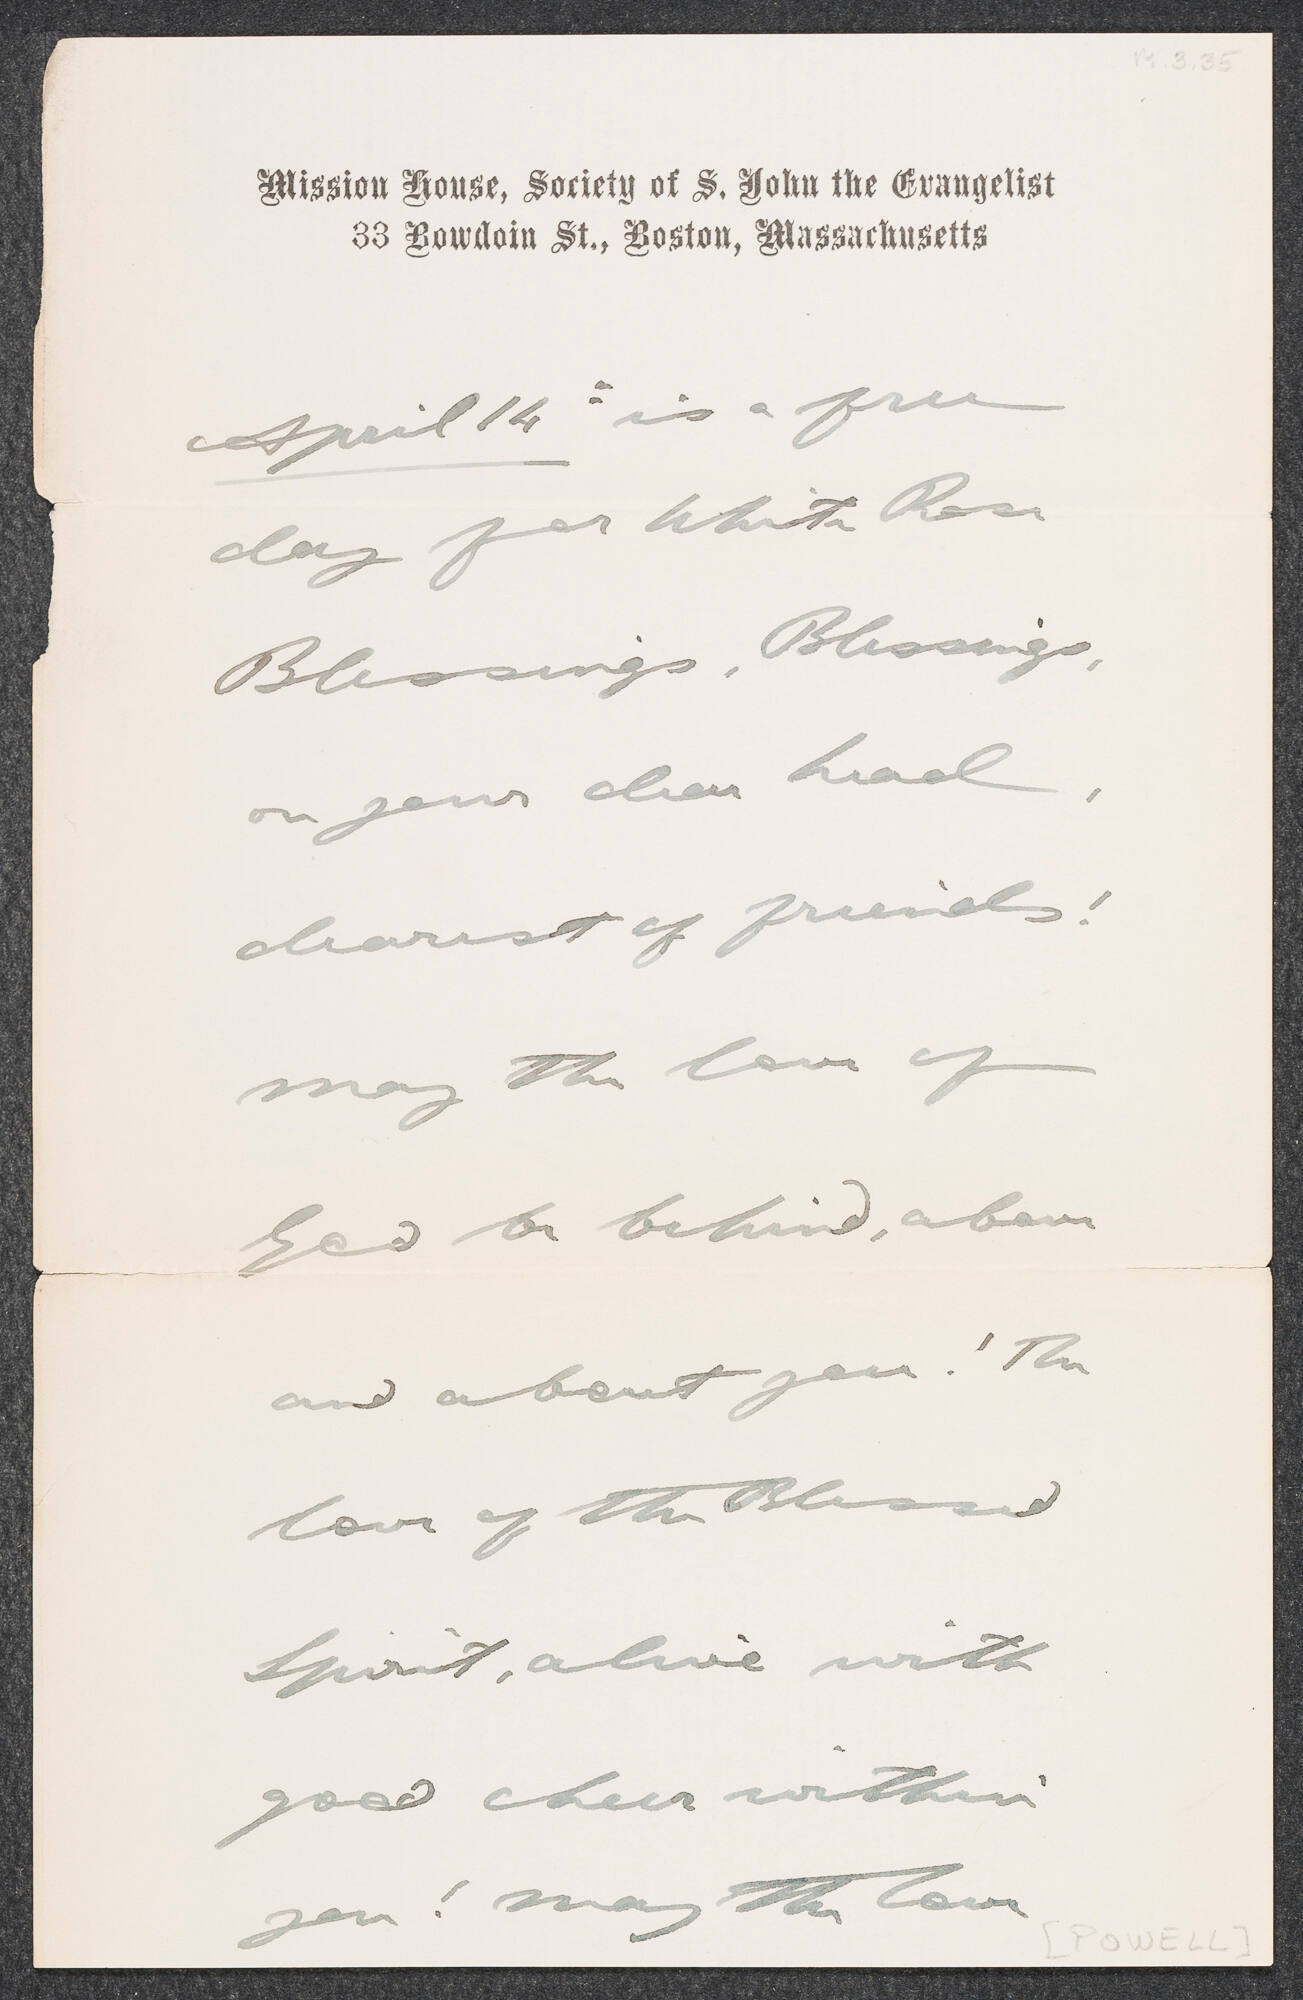 M.3.35
Mission House, Society of S. John the Evangelist
33 Bowdoin St., Boston, Massachusetts
April 14th is a free
day for White Rose
Blessings, Blessings,
on your dear head,
dearest of friends!
may the love of
God be behind, above
and about you! The
love of the Blessed
Spirit, alive with
good cheer within
you! may the love
[POWELL]